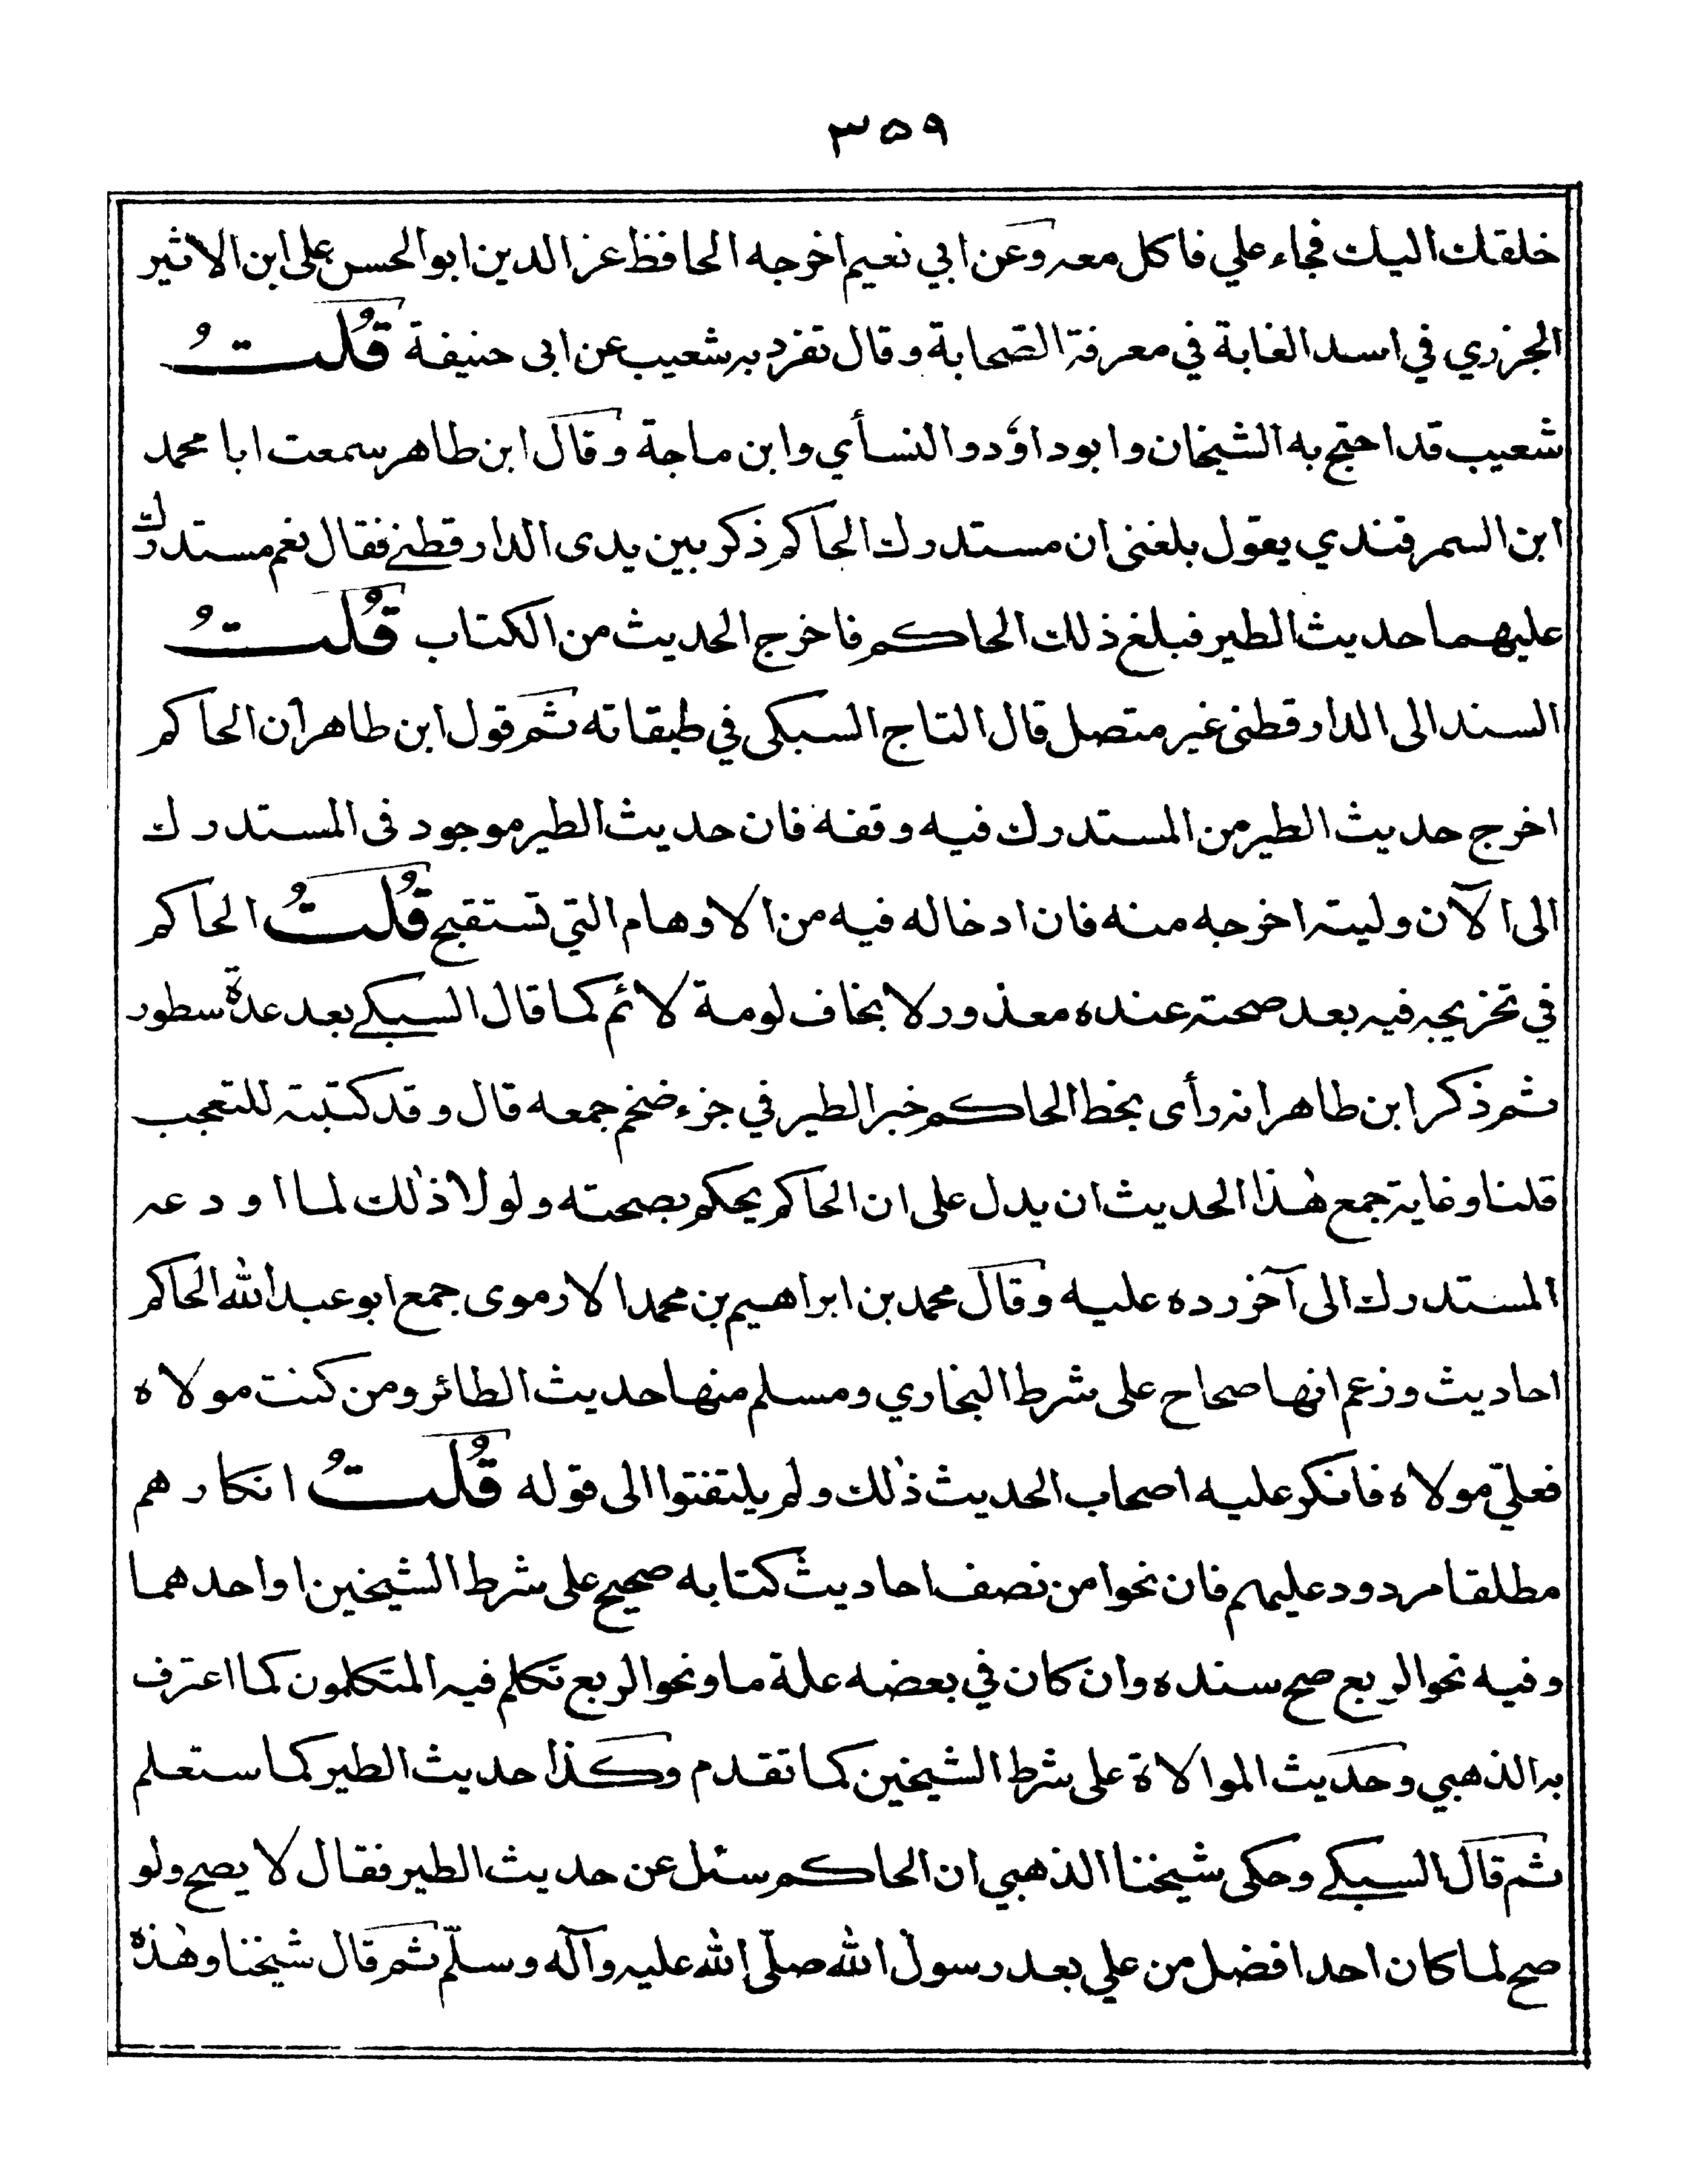 ٣٥٩
خلقك اليك فجاء علي فاكل معه وعن ابي نعيم اخرجه الحافظ عز الدين ابو الحسن على ابن الاثير
الجزري في اسد الغابة في معرفة الصحابة وقال تفرد به شعيب عن ابى حنيفة قُلتُ
شعيب قد احتج به الشيخان وابو داؤد والنسأي وابن ماجة وقال ابن طاهر سمعت ابا محمد
ابن السمرقندي يقول بلغنى ان مستدرك الحاكم ذكر بين يدى الدارقطنے فقال نعم مستدرك
عليهما حديث الطير فبلغ ذلك الحاكم فاخرج الحديث من الكتاب قُلتُ
السند الى الدارقطنى غير متصل قال التاج السبكى في طبقاته ثم قول ابن طاهر ان الحاكم
اخرج حديث الطير من المستدرك فيه وقفة فان حديث الطير موجود فى المستدرك
الى الآن وليته اخرجه منه فان ادخاله فيه من الاوهام التي تستقبح قُلتُ الحاكم
في تخريجه فيه بعد صحته عنده معذور لا يخاف لومة لائم كما قال السبكے بعد عدة سطور
ثم ذكر ابن طاهر انه رأى بخط الحاكم خبر الطير في جزء ضخم جمعه قال وقد كتبته للتعجب
قلنا وغاية جمع هٰذا الحديث ان يدل على ان الحاكم يحكم بصحته ولولا ذٰلك لما اودعه
المستدرك الى آخر رده عليه وقال محمد بن ابراهيم بن محمد الارموى جمع ابو عبد الله الحاكم
احاديث وزعم انها صحاح على شرط البخاري ومسلم منها حديث الطائر ومن كنت مولاه
فعلىّ مولاه فانكر عليه اصحاب الحديث ذٰلك ولم يلتفتوا الى قوله قُلتُ انكارهم
مطلقا مردود عليهم فان نحوا من نصف احاديث كتابه صحيح على شرط الشيخين او احدهما
وفيه نحو الربع صح سنده وان كان في بعضه علة ما ونحو الربع تكلم فيه المتكلمون كما اعترف
به الذهبي وحديث الموالاة على شرط الشيخين كما تقدم وكذا حديث الطير كما ستعلم
ثم قال السبكے وحكى شيخنا الذهبي ان الحاكم سئل عن حديث الطير فقال لا يصح ولو
صح لما كان احد افضل من علي بعد رسول الله صلّى الله عليه وآله وسلّم ثم قال شيخنا وهٰذه